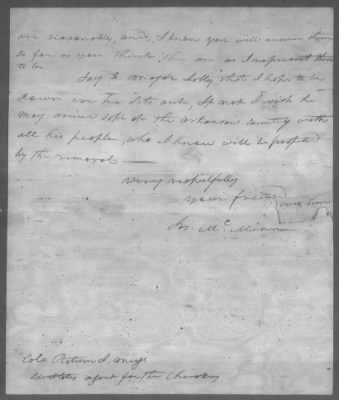 are reasonable, and I know you will answer them
so far as you think they are as I represent them
to be
Say to major Lolly that I hope to be
down in the , If not I wish he
may arrive safe at the Arkansas country with
all his people, who I know will be profited
by the removal —
very respectfully
your friend
Jos. McMinn
Colo. Return J. Meigs
agent for the Cherokees